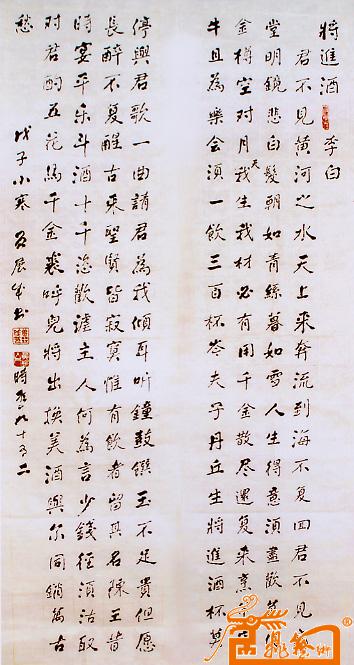 將進酒 李白
君不見黃河之水天上來奔流到海不复回君不見
堂明鏡悲白髮朝如青絲暮如雪人生得意須盡歡莫
金樽空對月天我生我材必有用千金散盡還复來烹
牛且為樂會須一飲三百杯岑夫子丹丘生將進酒杯莫
停與君歌一曲請君為我傾耳听鐘鼓饌玉不足貴但愿
長醉不复醒古來聖賢皆寂寞惟有飲者留其名陳王昔
時宴平乐斗酒十千恣歡謔主人何為言少錢徑須沽取
对君酌五花馬千金裘呼兒將出換美酒與尔同銷萬古
愁
戊子小寒 展书
時年九十又二